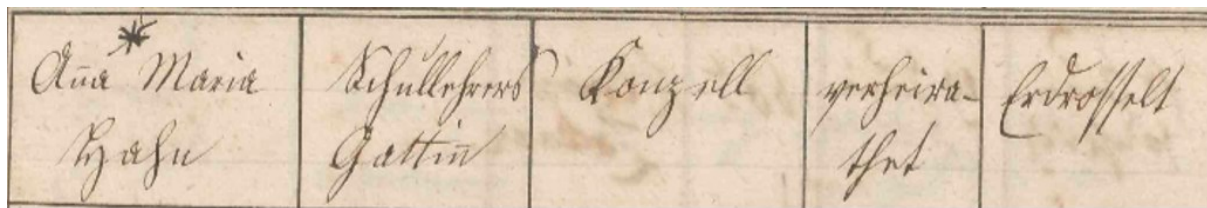 Aña Maria
Hahn
Schullehrers
Gattiñ
Konzell
verheira-
thet
Erdrosselt